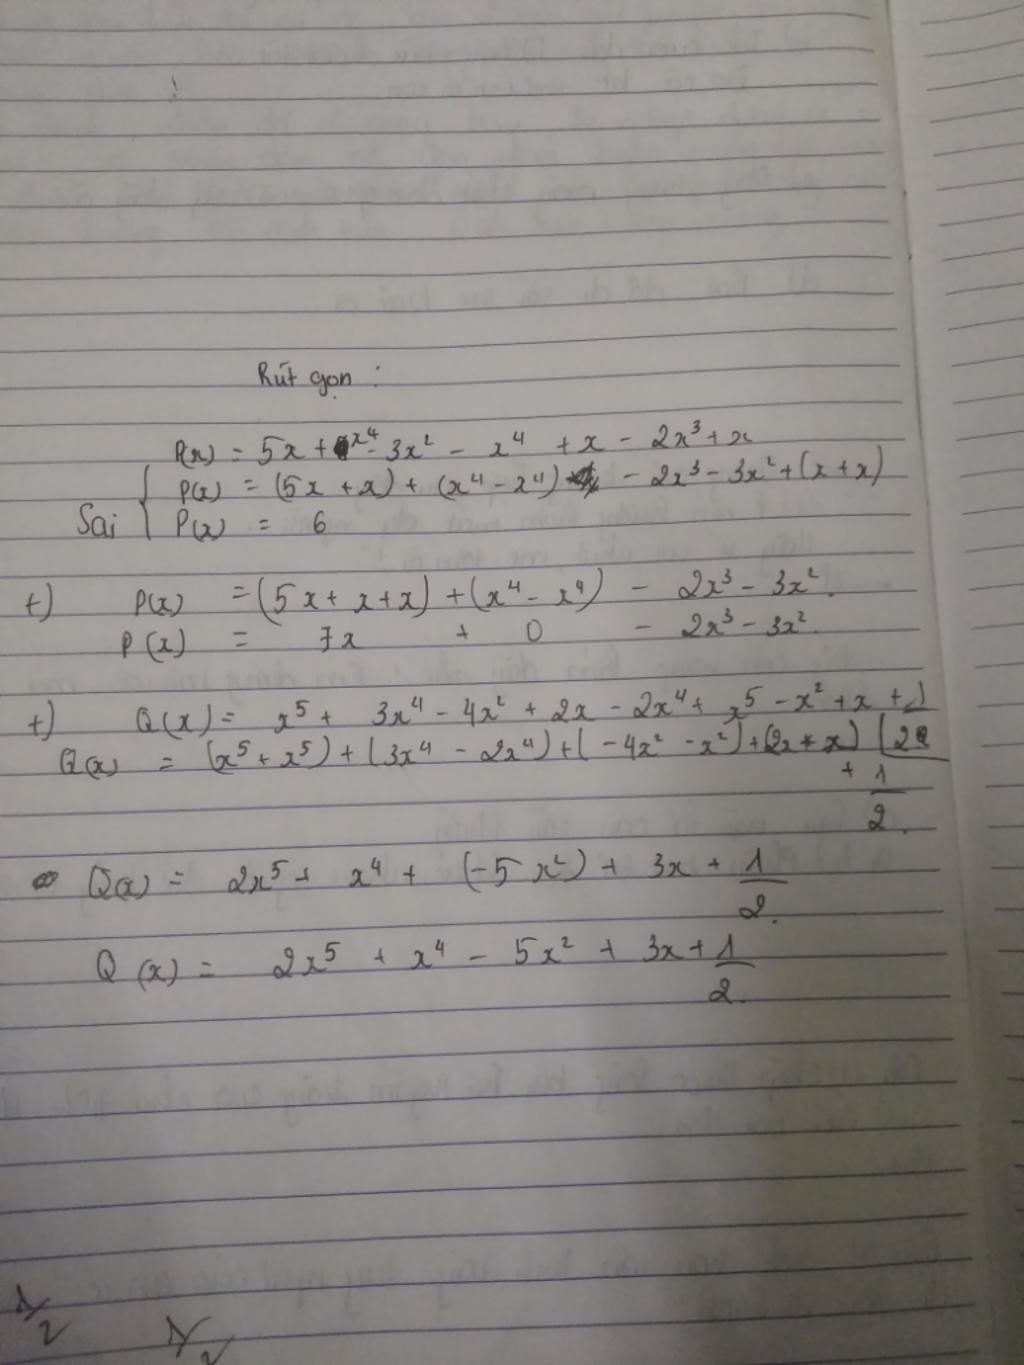 Rút gọn :
P(x) = 5x + x⁴ - 3x² - x⁴ + x - 2x³ + x
P(x) = (5x + x) + (x⁴ - x⁴) - 2x³ - 3x² + (x + x)
Sai P(x) = 6
+) P(x) = (5x + x + x) + (x⁴ - x⁴) - 2x³ - 3x².
P(x) = 7x + 0 - 2x³ - 3x².
+) Q(x) = x⁵ + 3x⁴ - 4x² + 2x - 2x⁴ + x⁵ - x² + x + 1
Q(x) = (x⁵ + x⁵) + (3x⁴ - 2x⁴) + (-4x² - x²) + (2x + x) (2
+ 1/2.
Q(x) = 2x⁵ + x⁴ + (-5x²) + 3x + 1/2.
Q(x) = 2x⁵ + x⁴ - 5x² + 3x + 1/2.
1/2
1/2